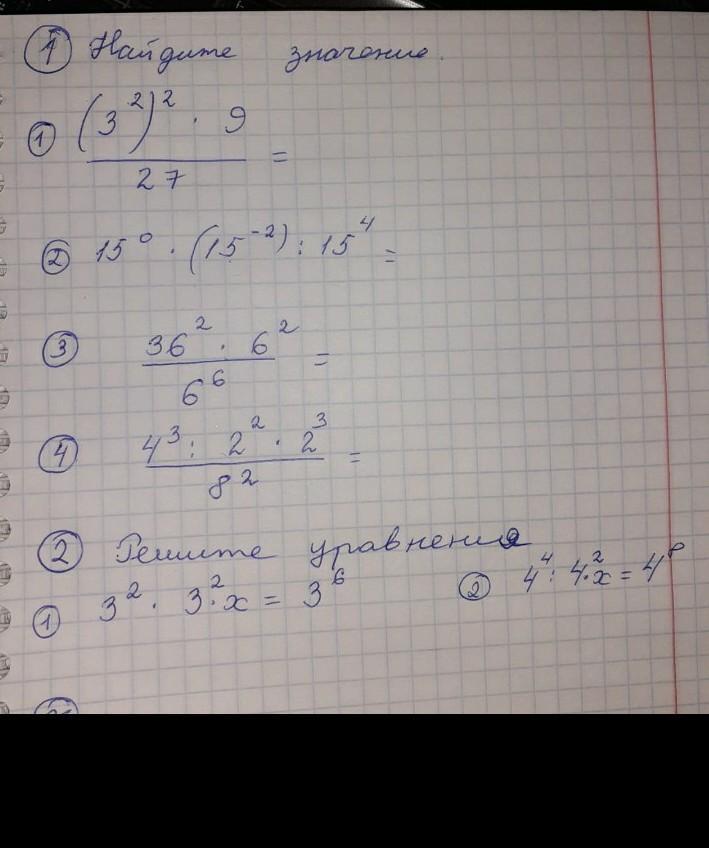 ① Найдите значение.
① (3²)² · 9 / 27 =
② 15⁰ · (15⁻²) : 15⁴ =
③ 36² · 6² / 6⁶ =
④ 4³ : 2² · 2³ / 8² =
② Решите уравнения
① 3² · 3² · x = 3⁶ ② 4⁴ : 4² · x = 4⁸